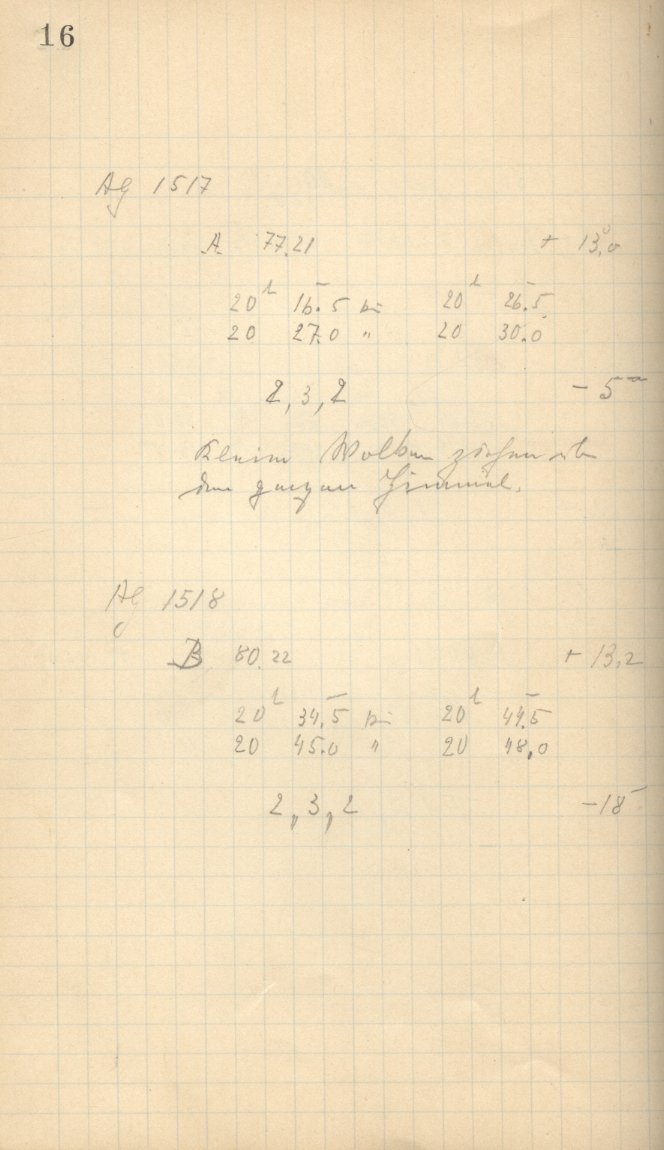 16
AG 1517
A 77.21 + 13°,0
20h 16.5 bis 20h 26.5
20 27.0 " 20 30.0
2, 3, 2 - 5m
Kleine Wolken ziehen über
den ganzen Himmel.
AG 1518
B 80.22 + 13,2
20h 34.5 bis 20h 44.5
20 45.0 " 20 48,0
2, 3, 2 -18